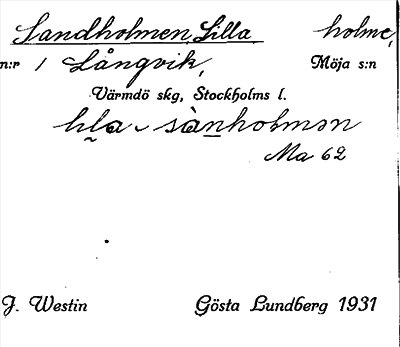 Sandholmen, Lilla holme,
n:r 1 Långvik, Möja s:n
Värmdö skg, Stockholms l.
lila sànholmən
Ma 62
J. Westin Gösta Lundberg 1931